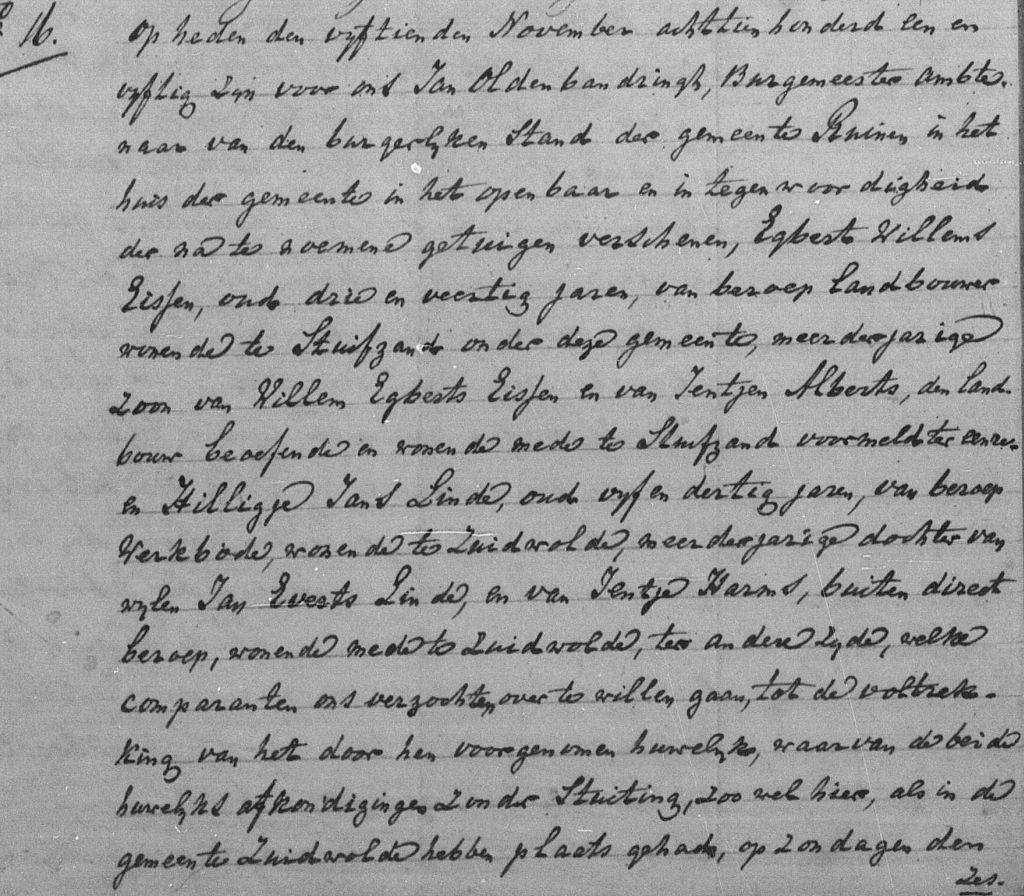 16. Op heden den vyftienden November achttienhonderd een en
vyftig zyn voor ons Jan Oldenbandringh, Burgemeester Ambte-
naar van den burgerlyken Stand der gemeente Ruinen in het
huis der gemeente in het openbaar en in tegenwoordigheid
der na te noemene getuigen verschenen, Egbert Willems
Eissen, oud drie en veertig jaren, van beroep landbouwer
wonende te Stuifzand onder deze gemeente, meerderjarige
zoon van Willem Egberts Eissen en van Jentjen Alberts, den land-
bouw beoefende en wonende mede te Stuifzand voormeld ter eenre
en Hilligje Jans Linde, oud vyf en dertig jaren, van beroep
Werkbode, wonende te Zuidwolde, meerderjarige dochter van
wylen Jan Everts Linde, en van Jentje Harms, buiten direct
beroep, wonende mede te Zuidwolde, ter andere zyde, welke
comparanten ons verzochten over te willen gaan, tot de voltrek-
king van het door hen voorgenomen huwelyk, waarvan de beide
huwelyks afkondigingen zonder Stuiting, zoo wel hier, als in de
gemeente Zuidwolde hebben plaats gehad, op zondagen den
zes.